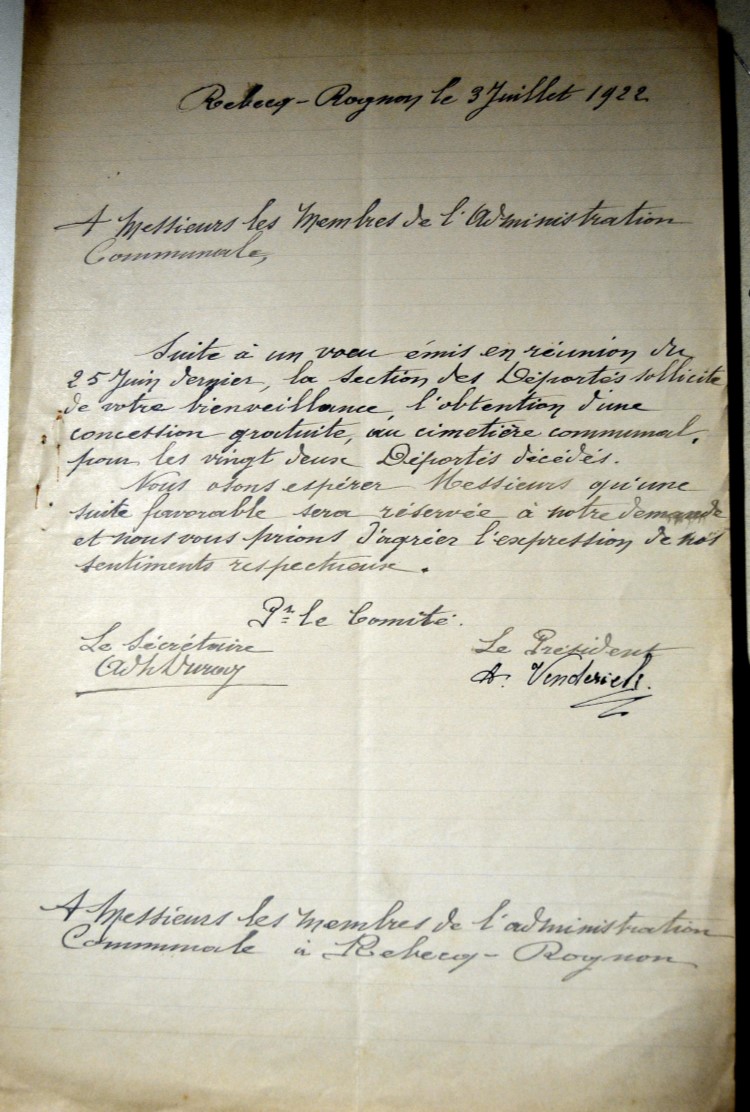 Rebecq-Rognon le 3 Juillet 1922
A Messieurs les Membres de l'Administration
Communale,
Suite à un voeu émis en réunion du
25 Juin dernier, la section des Déportés sollicite
de votre bienveillance, l'obtention d'une
concession gratuite, au cimetière communal,
pour les vingt deux Déportés décédés.
Nous osons espérer Messieurs qu'une
suite favorable sera réservée à notre demande
et nous vous prions d'agréer l'expression de nos
sentiments respectueux.
Pr le Comité.
Le Secrétaire
Le Président
A Messieurs les membres de l'administration
Communale à Rebecq-Rognon